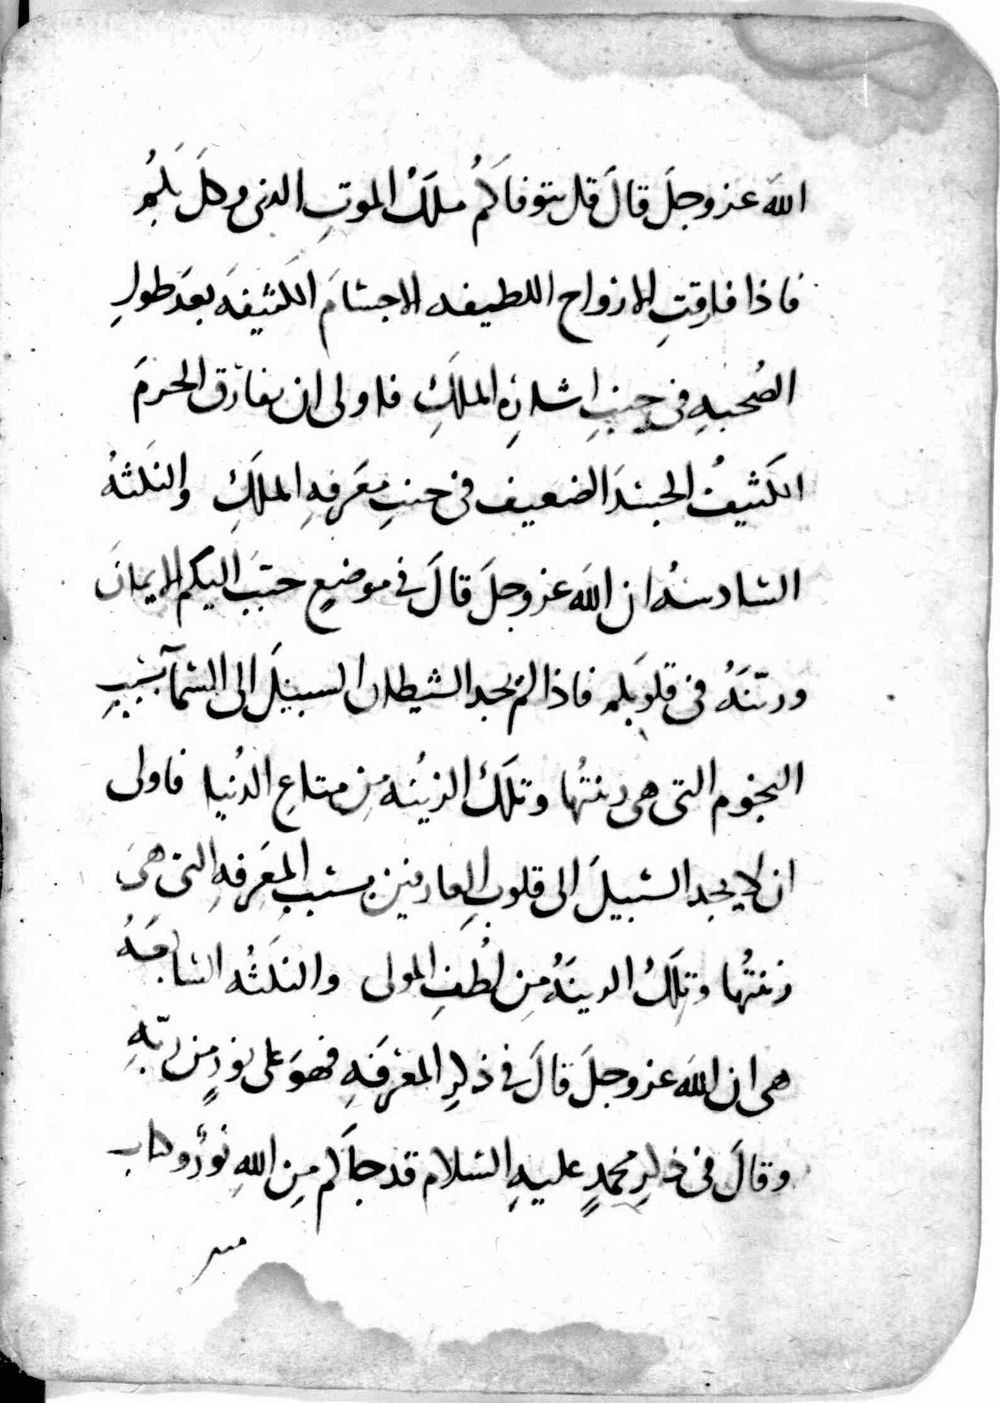 الله عز وجل قال قل يتوفاكم ملك الموت الذى وكل بكم
فاذا فارقت الارواح اللطيفه الاجسام الكثيفه بعد طول
الصحبه فى جنب اشاره الملك فاولى ان يفارق الجرم
الكثيف الجسد الضعيف فى جنب معرفه الملك والنكته
السادسه ان الله عز وجل قال فى موضع حبب اليكم الايمان
وزينه فى قلوبكم فاذا لم يجد الشيطان السبيل الى السماء بسبب
النجوم التى هى زينتها وتلك الزينه من متاع الدنيا فاولى
ان لا يجد السبيل الى قلوب العارفين بسبب المعرفه التى هى
زينتها وتلك الزينه من لطف المولى والنكته السابعه
هى ان الله عز وجل قال فى ذكر المعرفه فهو على نور من ربه
وقال فى ذكر محمد عليه السلام قد جاكم من الله نور وكتاب
مبين